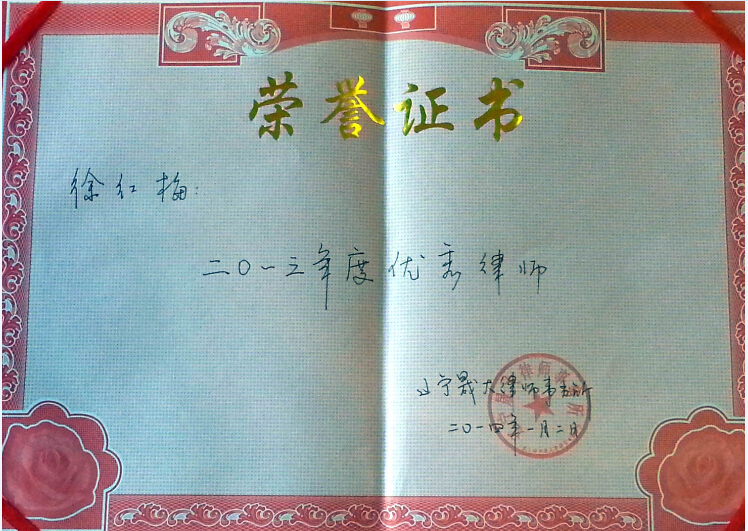 荣誉证书
徐红梅:
二〇一三年度优秀律师
辽宁晟大律师事务所
二〇一四年一月二日